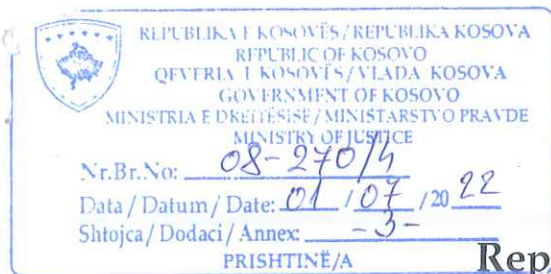 REPUBLIKA E KOSOVËS / REPUBLIKA KOSOVA
REPUBLIC OF KOSOVO
QEVERIA E KOSOVËS / VLADA KOSOVA
GOVERNMENT OF KOSOVO
MINISTRIA E DREJTËSISË / MINISTARSTVO PRAVDE
MINISTRY OF JUSTICE
Nr.Br.No: 08-270/4
Data / Datum / Date: 01 / 07 / 20 22
Shtojca / Dodaci / Annex: -3-
PRISHTINË/A
Rep